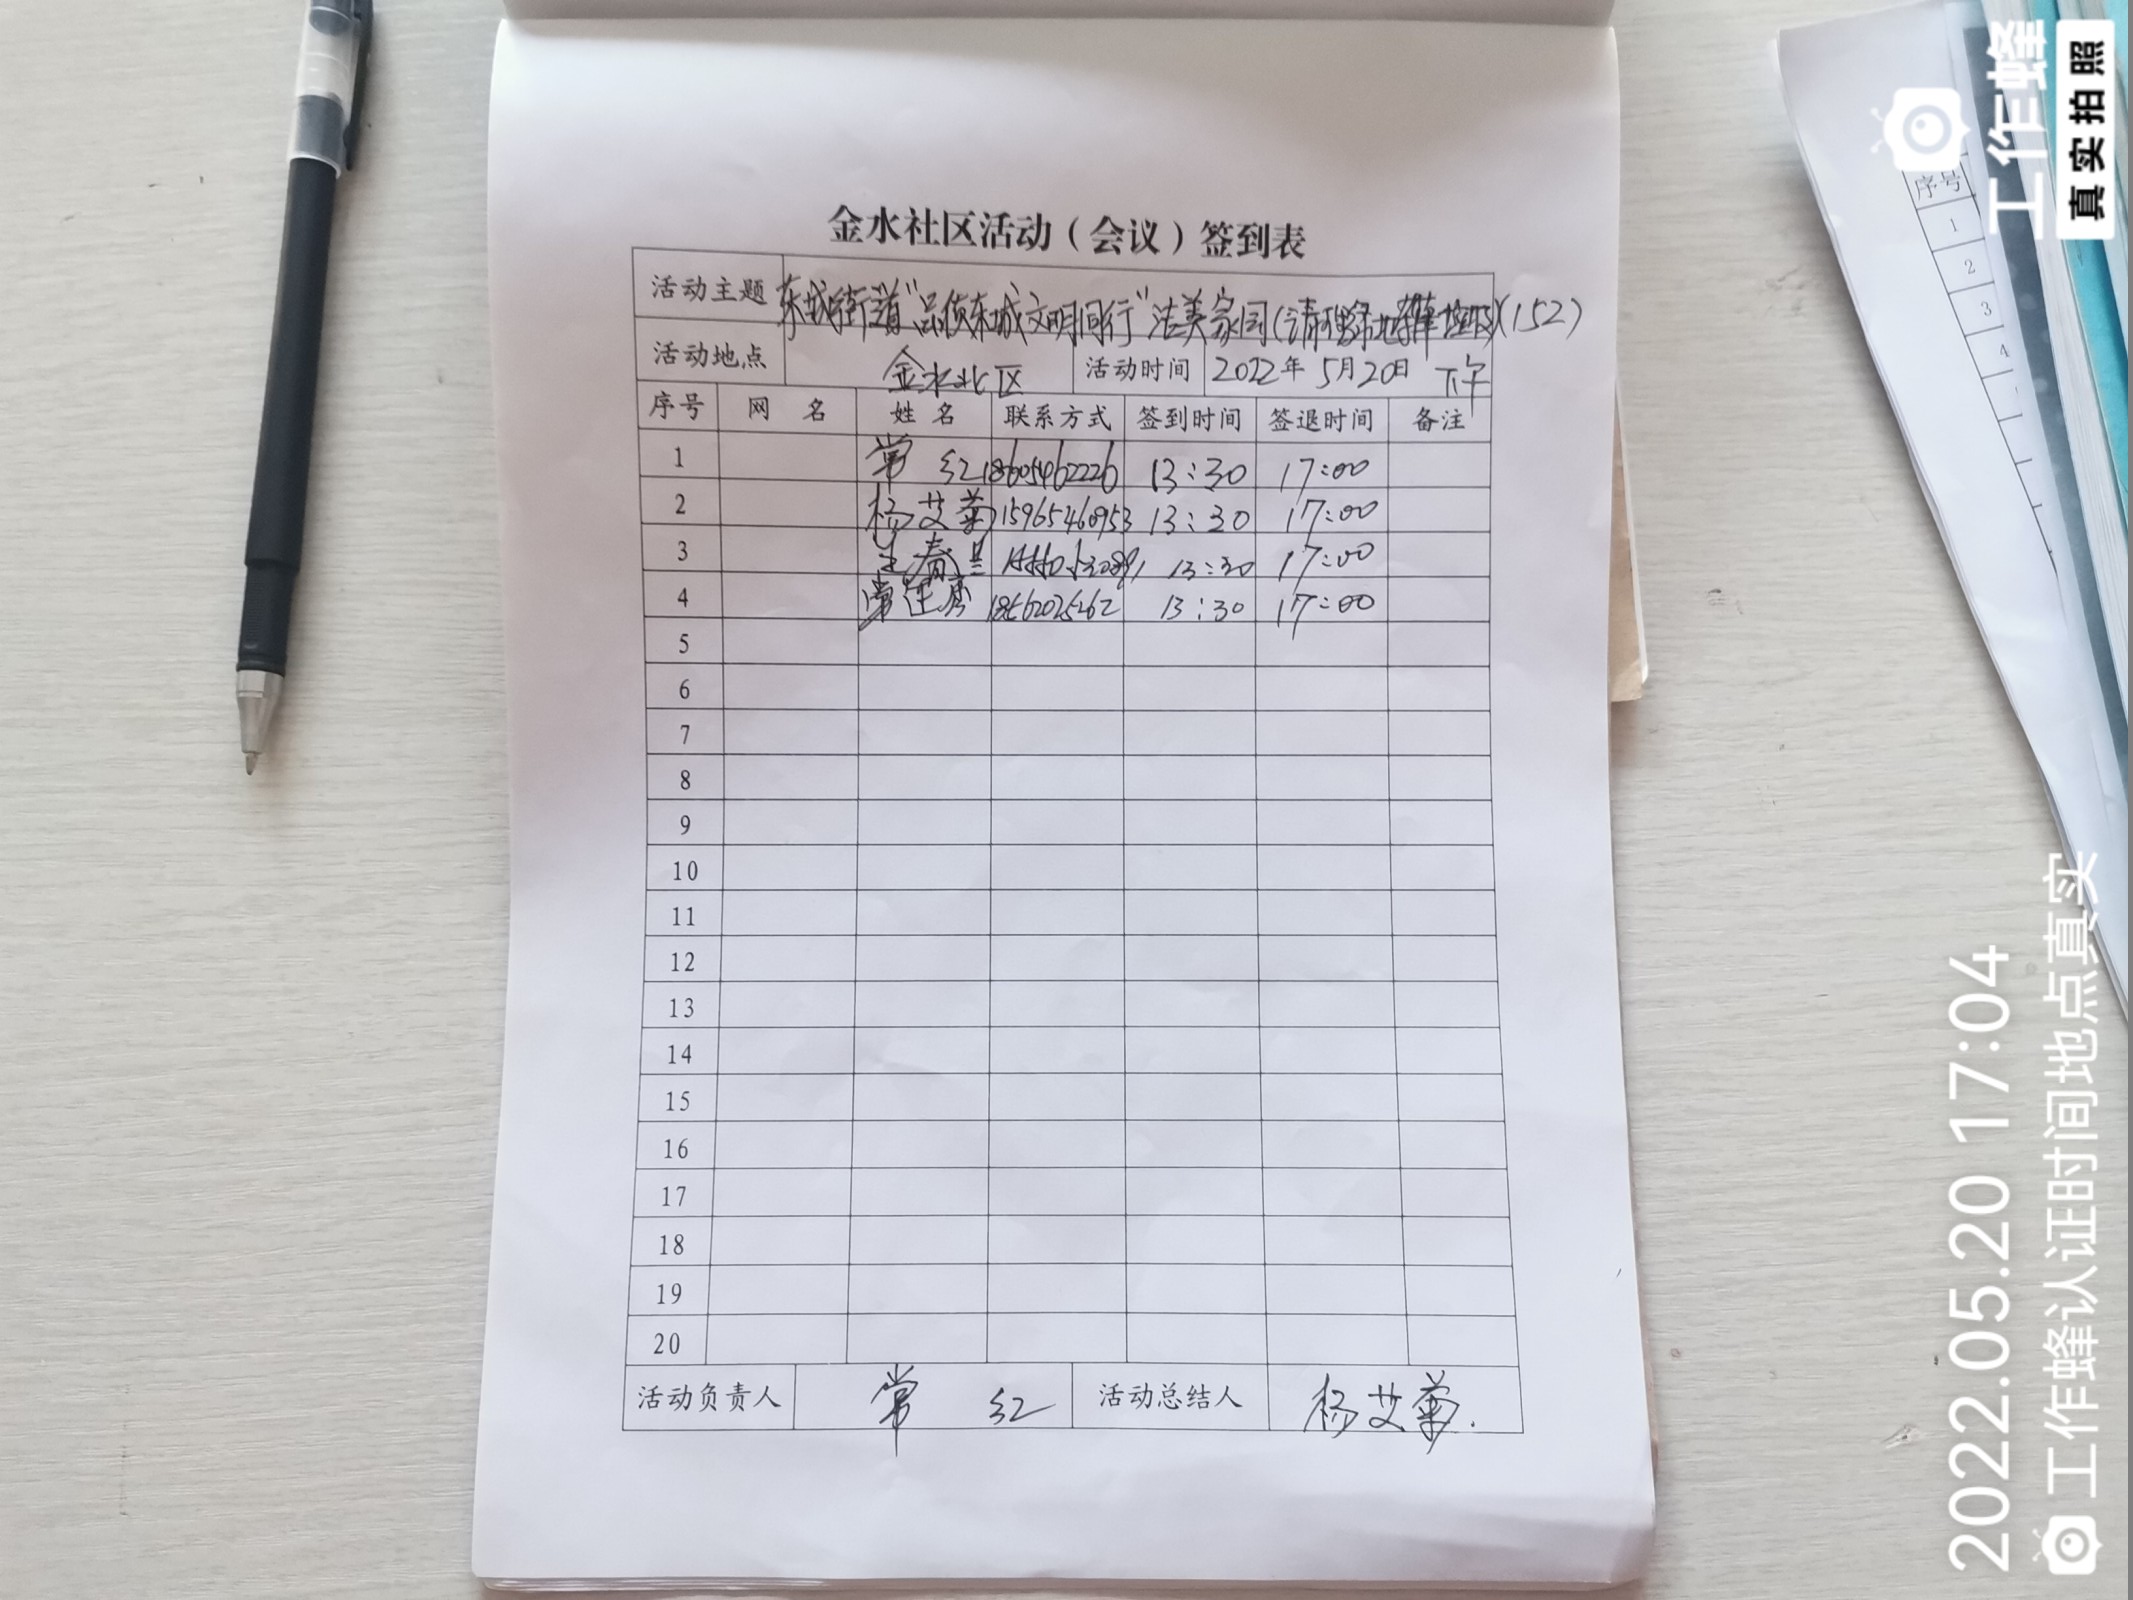 金水社区活动（会议）签到表
活动主题 东城街道"品质东城文明同行"洁美家园(清理绿地 (152)
活动地点 金水北区 活动时间 2022年5月20日 下午
序号 网 名 姓 名 联系方式 签到时间 签退时间 备注
1 常 红 18605462226 13:30 17:00
2 杨艾菊 15965460953 13:30 17:00
3 王春兰 13:30 17:00
4 常 13:30 17:00
5
6
7
8
9
10
11
12
13
14
15
16
17
18
19
20
活动负责人 常 红 活动总结人 杨艾菊.
序号
1
2
3
4
工作蜂
真实拍照
2022.05.20 17:04
工作蜂认证时间地点真实